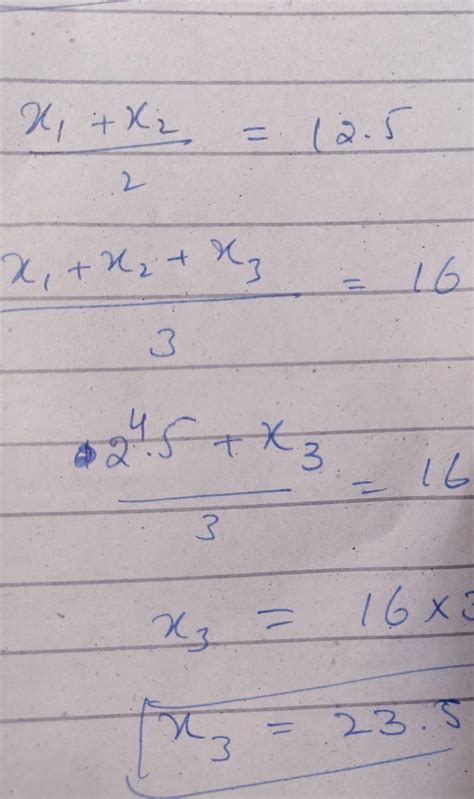 x₁ + x₂ / 2 = 12.5
x₁ + x₂ + x₃ / 3 = 16
24.5 + x₃ / 3 = 16
x₃ = 16 × 3
x₃ = 23.5